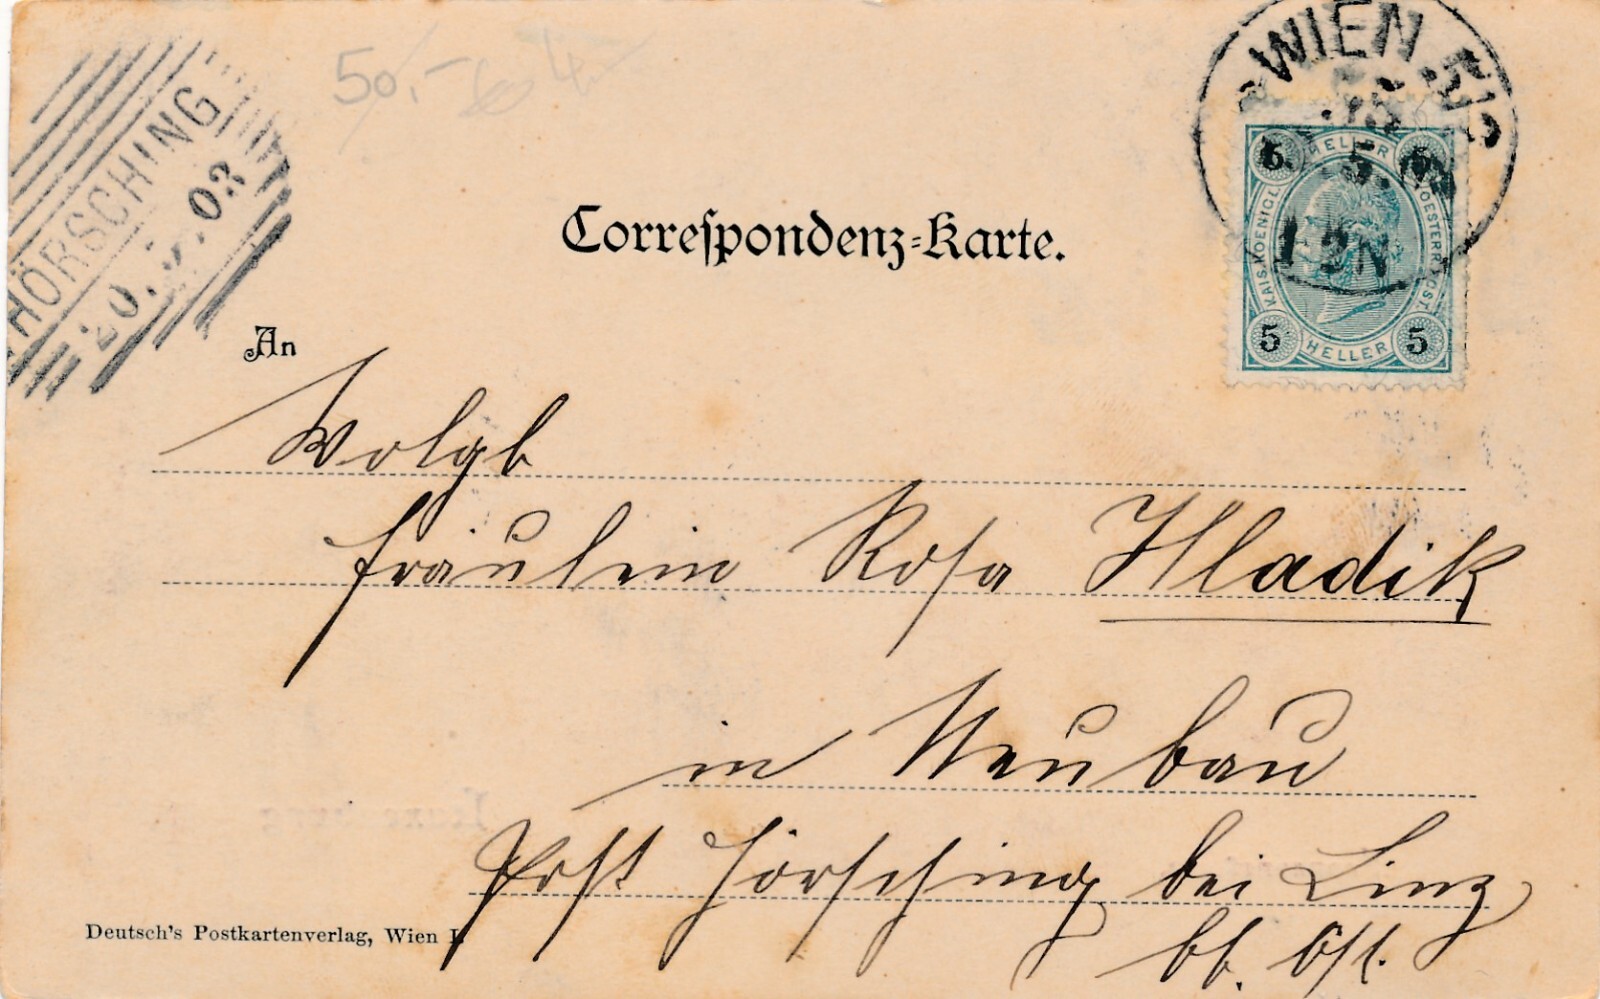 50.-
HÖRSCHING
20. 03
WIEN
12N
5 HELLER 5
KAIS. KOENIGL. OESTERR. POST.
5 HELLER 5
Correspondenz-Karte.
An
Wolgb
Fräulein Rosa Hladik
in Neubau
Post Hörsching bei Linz
Ob. Öst.
Deutsch's Postkartenverlag, Wien I.